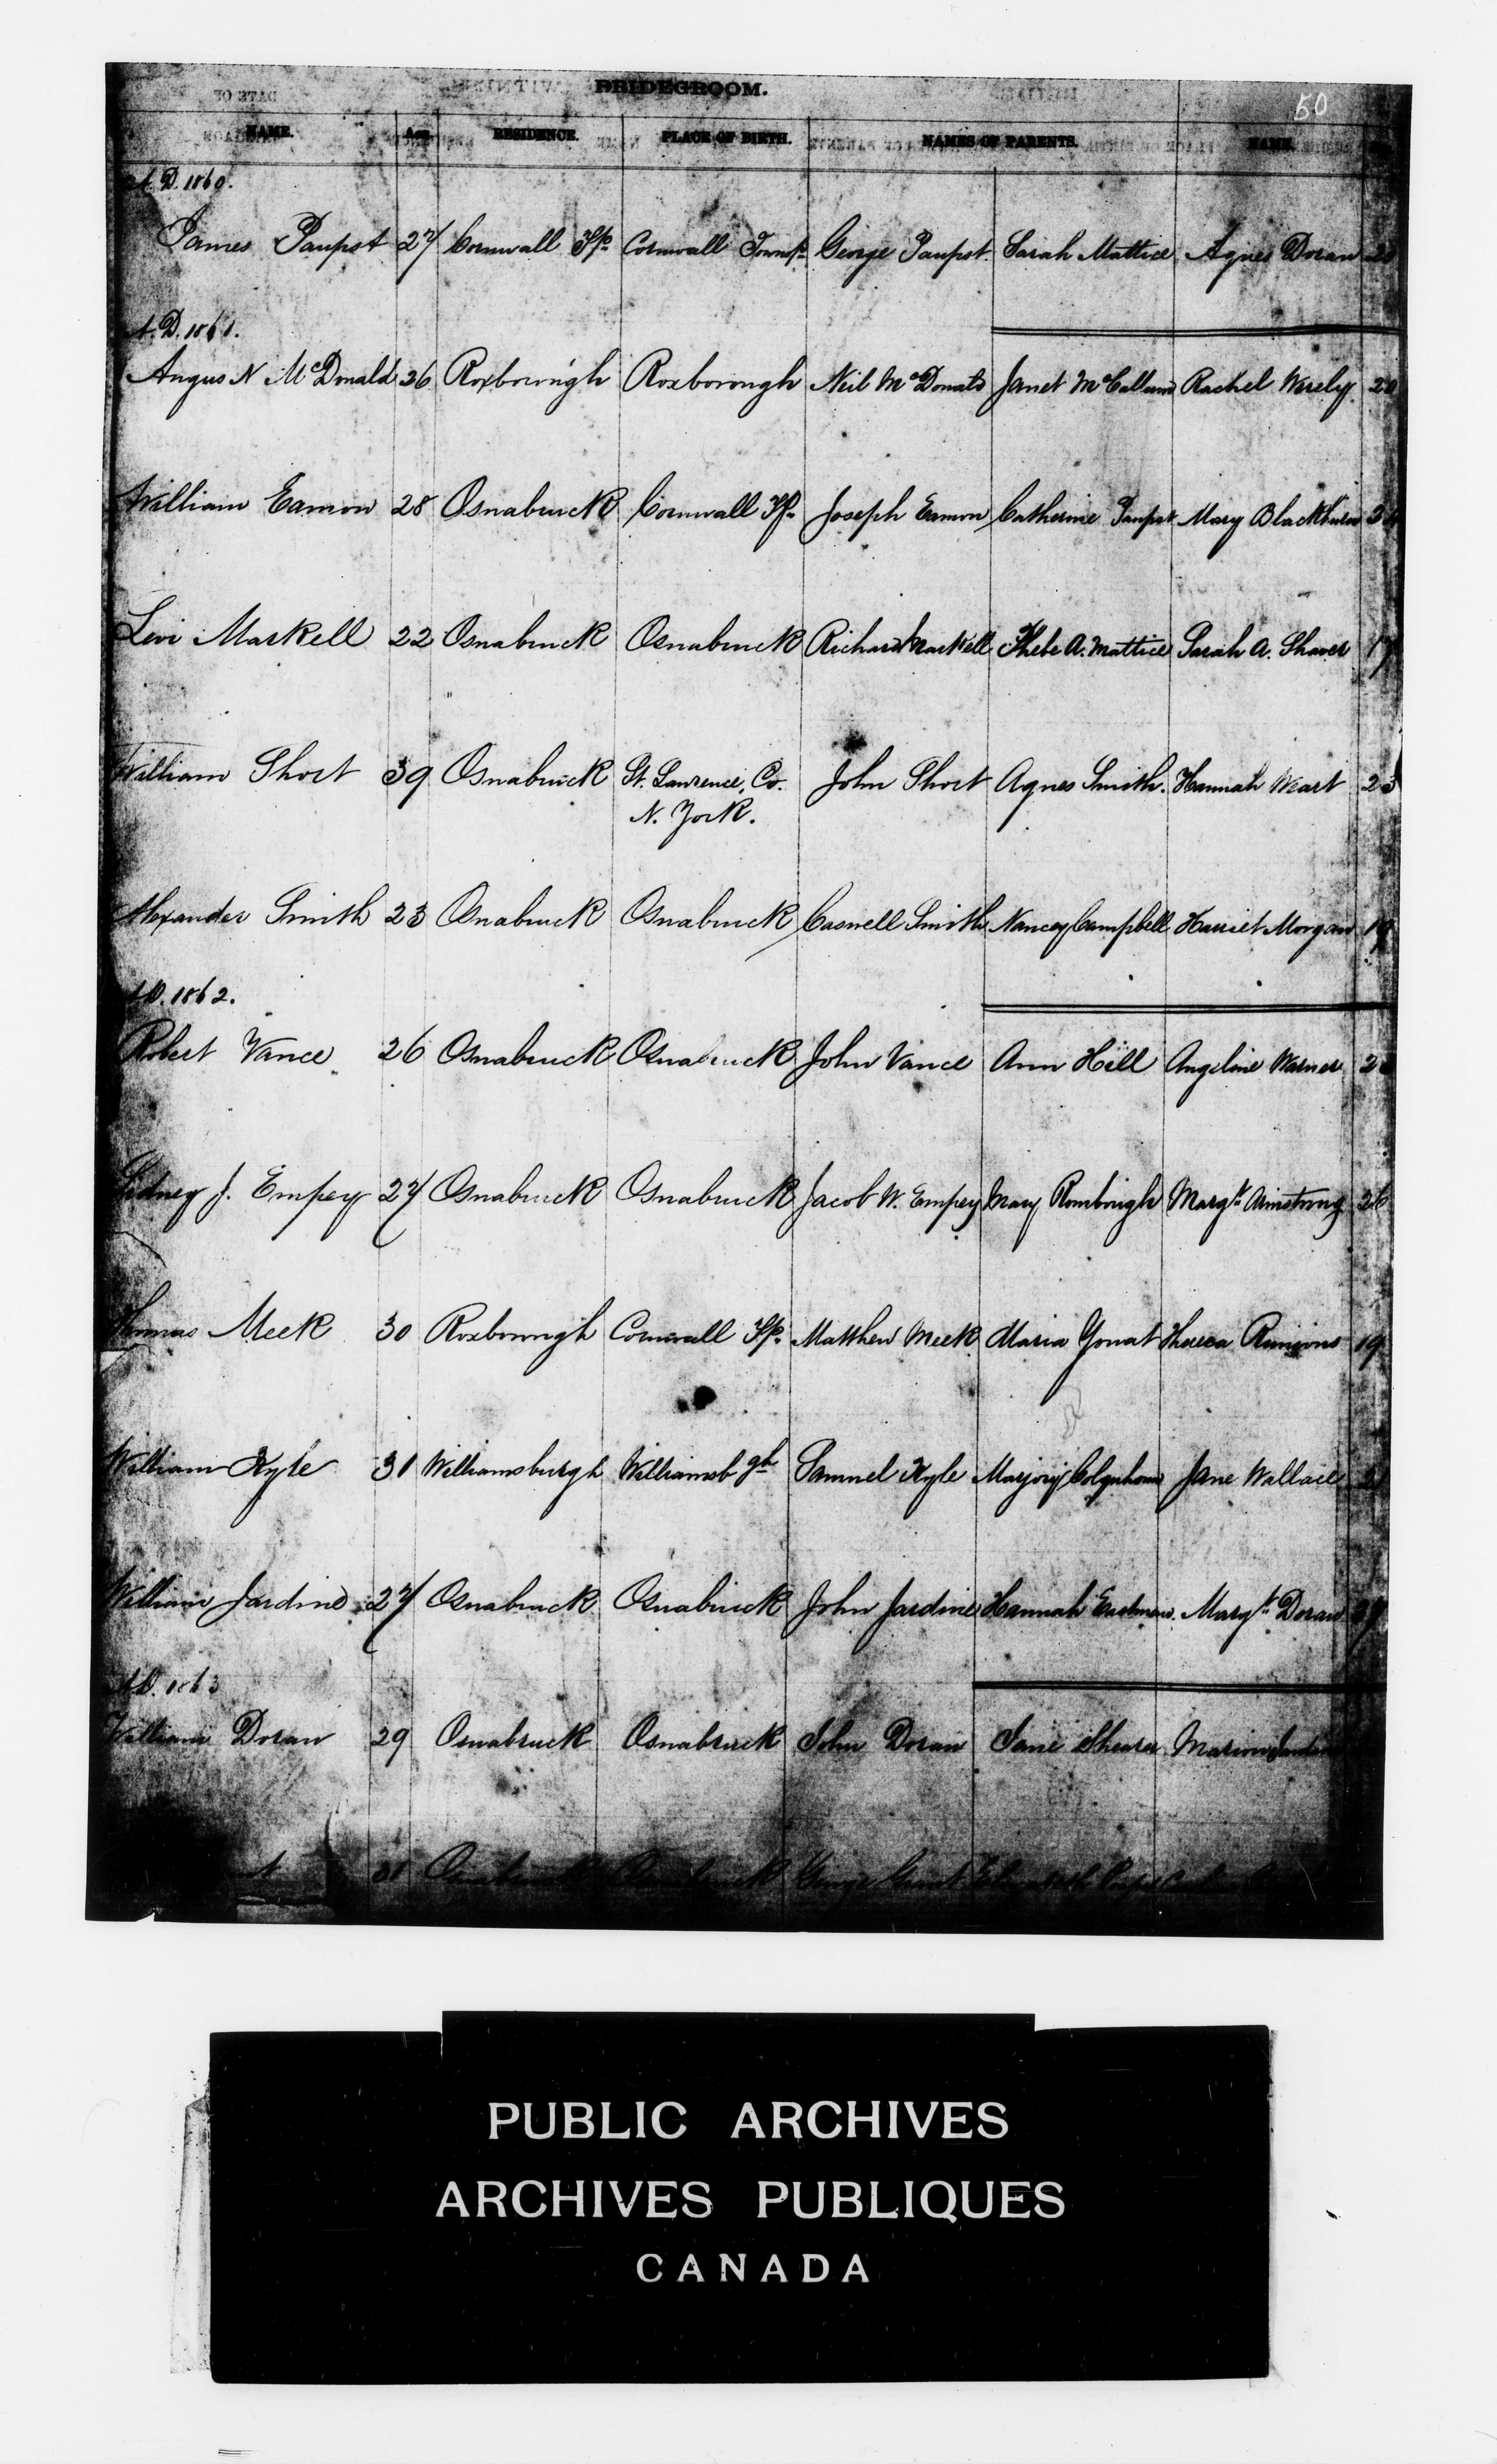 BRIDEGROOM.
50
NAME. AGE. RESIDENCE. PLACE OF BIRTH. NAMES OF PARENTS. NAME.
A.D. 1860.
James Paupst 27 Cornwall Tp. Cornwall Townsp. George Paupst. Sarah Mattice Agnes Doran
A.D. 1861.
Angus N McDonald 26 Roxborough Roxborough Neil McDonald Janet McCallum Rachel Wereley
William Eamon 28 Osnabruck Cornwall Tp. Joseph Eamon Catherine Paupst Mary Blackburn
Levi Markell 22 Osnabruck Osnabruck Richard Markell Phebe A. Mattice Sarah A. Shaver 17
William Short 39 Osnabruck St. Lawrence, Co. John Short Agnes Smith. Hannah Weart 23
N. York.
Alexander Smith 23 Osnabruck Osnabruck Caswell Smith Nancy Campbell Harriet Morgan 19
A.D. 1862.
Robert Vance 26 Osnabruck Osnabruck John Vance Ann Hill Angeline Warner
Sidney J. Empey 27 Osnabruck Osnabruck Jacob W. Empey Mary Rombough Margt. Armstrong 26
Thomas Meek 30 Roxborough Cornwall Tp. Matthew Meek Maria Runions 19
William Kyle 31 Williamsburgh Williamsbgh Samuel Kyle Marjory Colquhoun Jane Wallace
William Jardine 27 Osnabruck Osnabruck John Jardine Hannah Eastman. Margt. Doran
A.D. 1863
William Doran 29 Osnabruck Osnabruck John Doran Jane Shearer Marion
31 Osnabruck Osnabruck George
PUBLIC ARCHIVES
ARCHIVES PUBLIQUES
CANADA